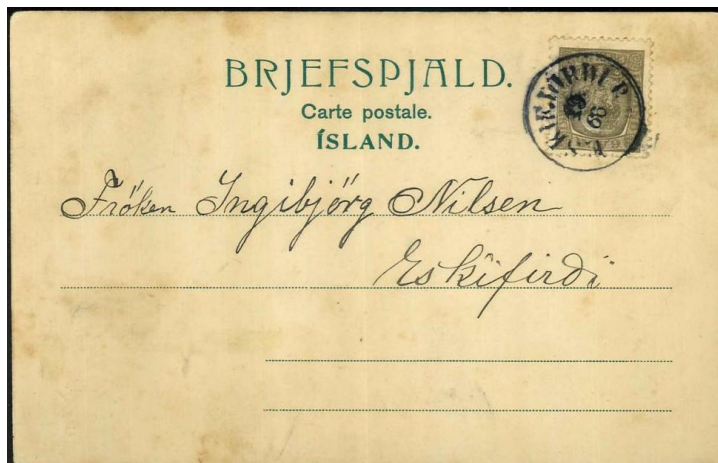 BRJEFSPJALD.
Carte postale.
ÍSLAND.
Fröken Ingibjörg Nilsen
Eskifirdi